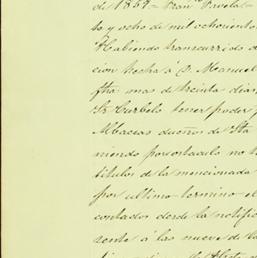 de 1857. Fran
to y ocho de mil ochocient
Habiendo transcurrido
cion hecha á D. Manuel
fha mas de treinta dias
Sr Curbelo tener poder
Albaceas dueños de Sta
niendo obstaculo no
titulos de la mencionada
por ultimo termino el
contados desde la notific
sente á las nueve de la